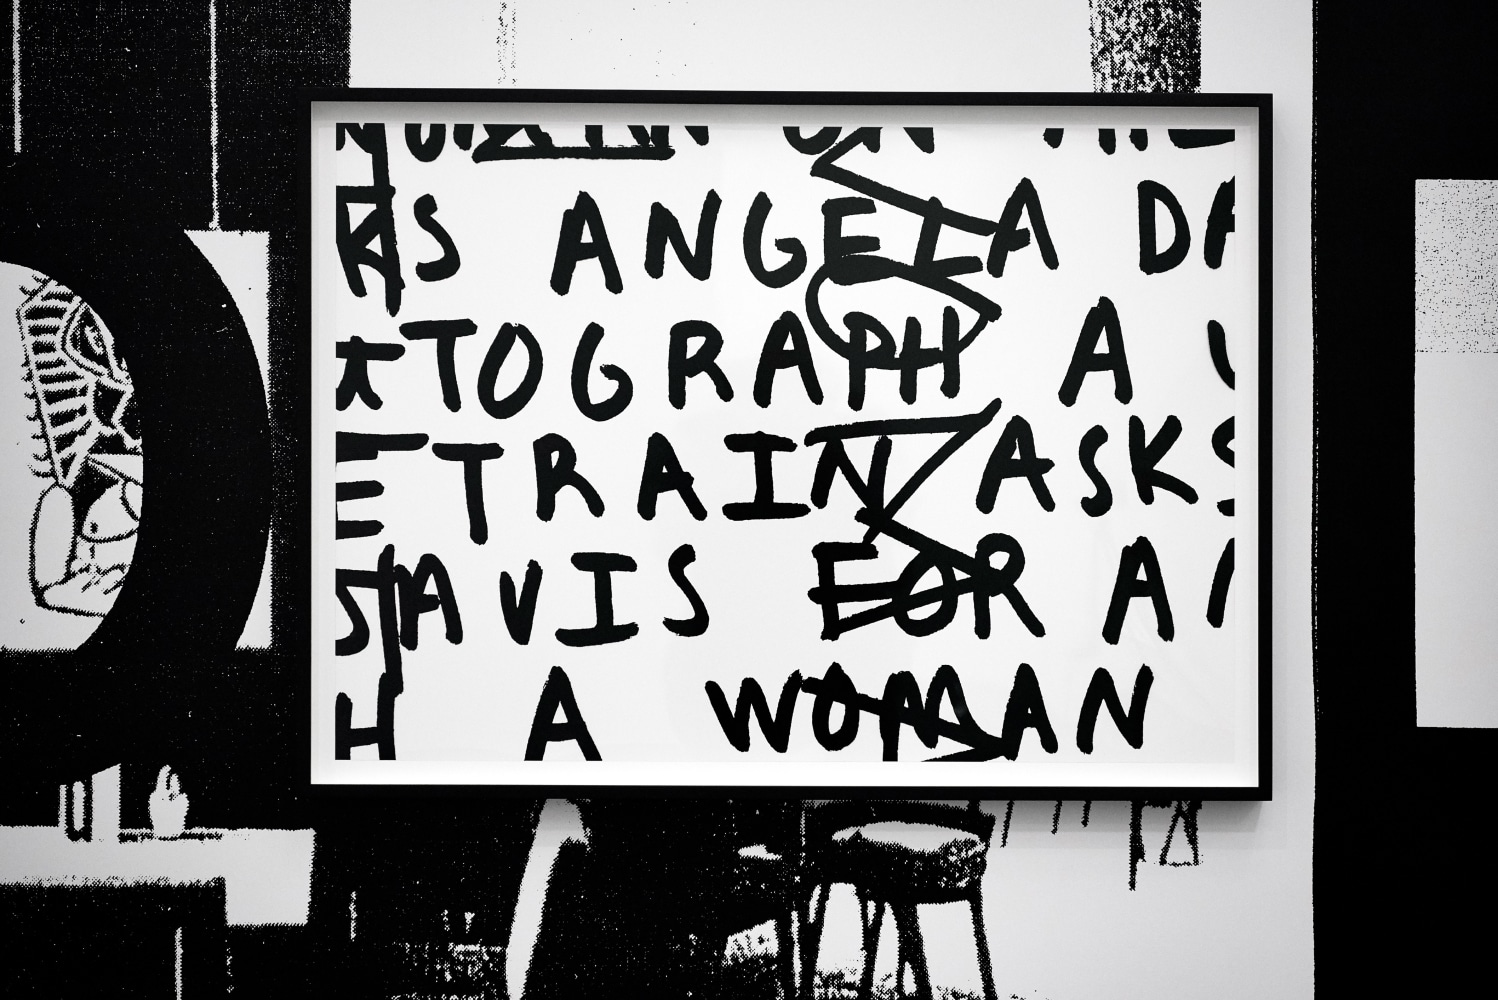 KS ANGELA DA
TOGRAPH A
E TRAIN ASKS
AVIS FOR A
H A WOMAN